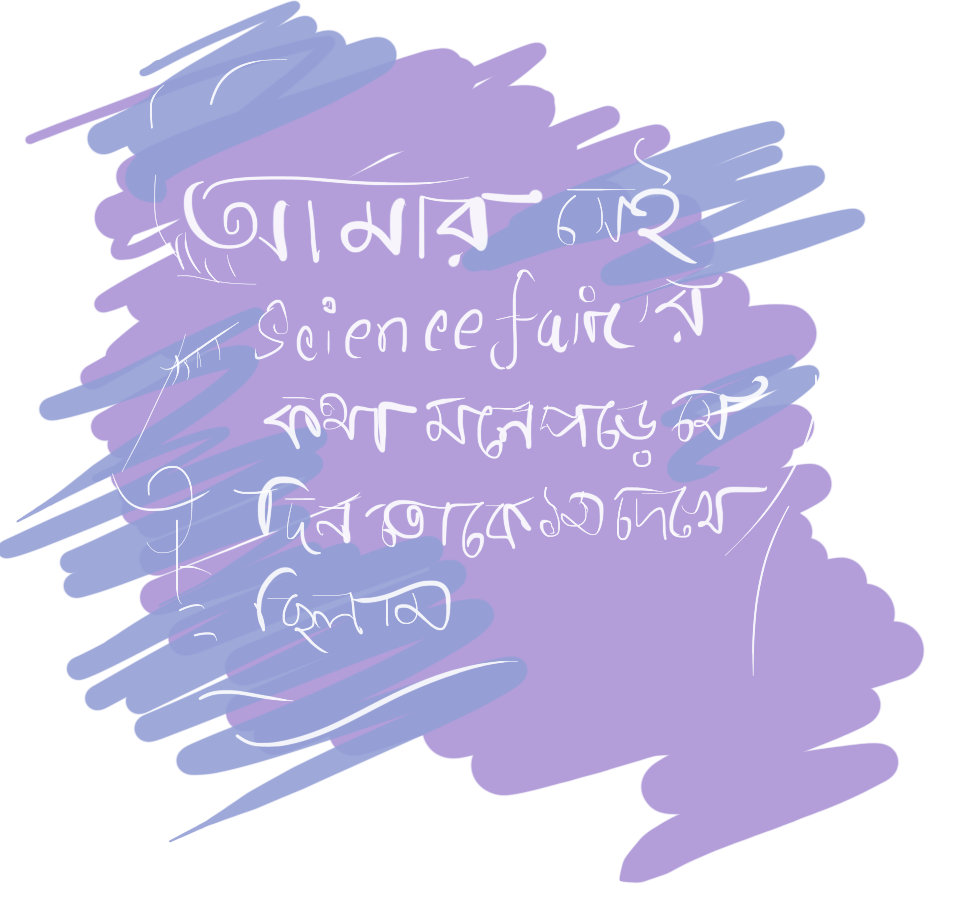 আমার সেই
Science fair'র
কথা মনে পড়ে যে
দিন তাকে দেখে
ছিলাম